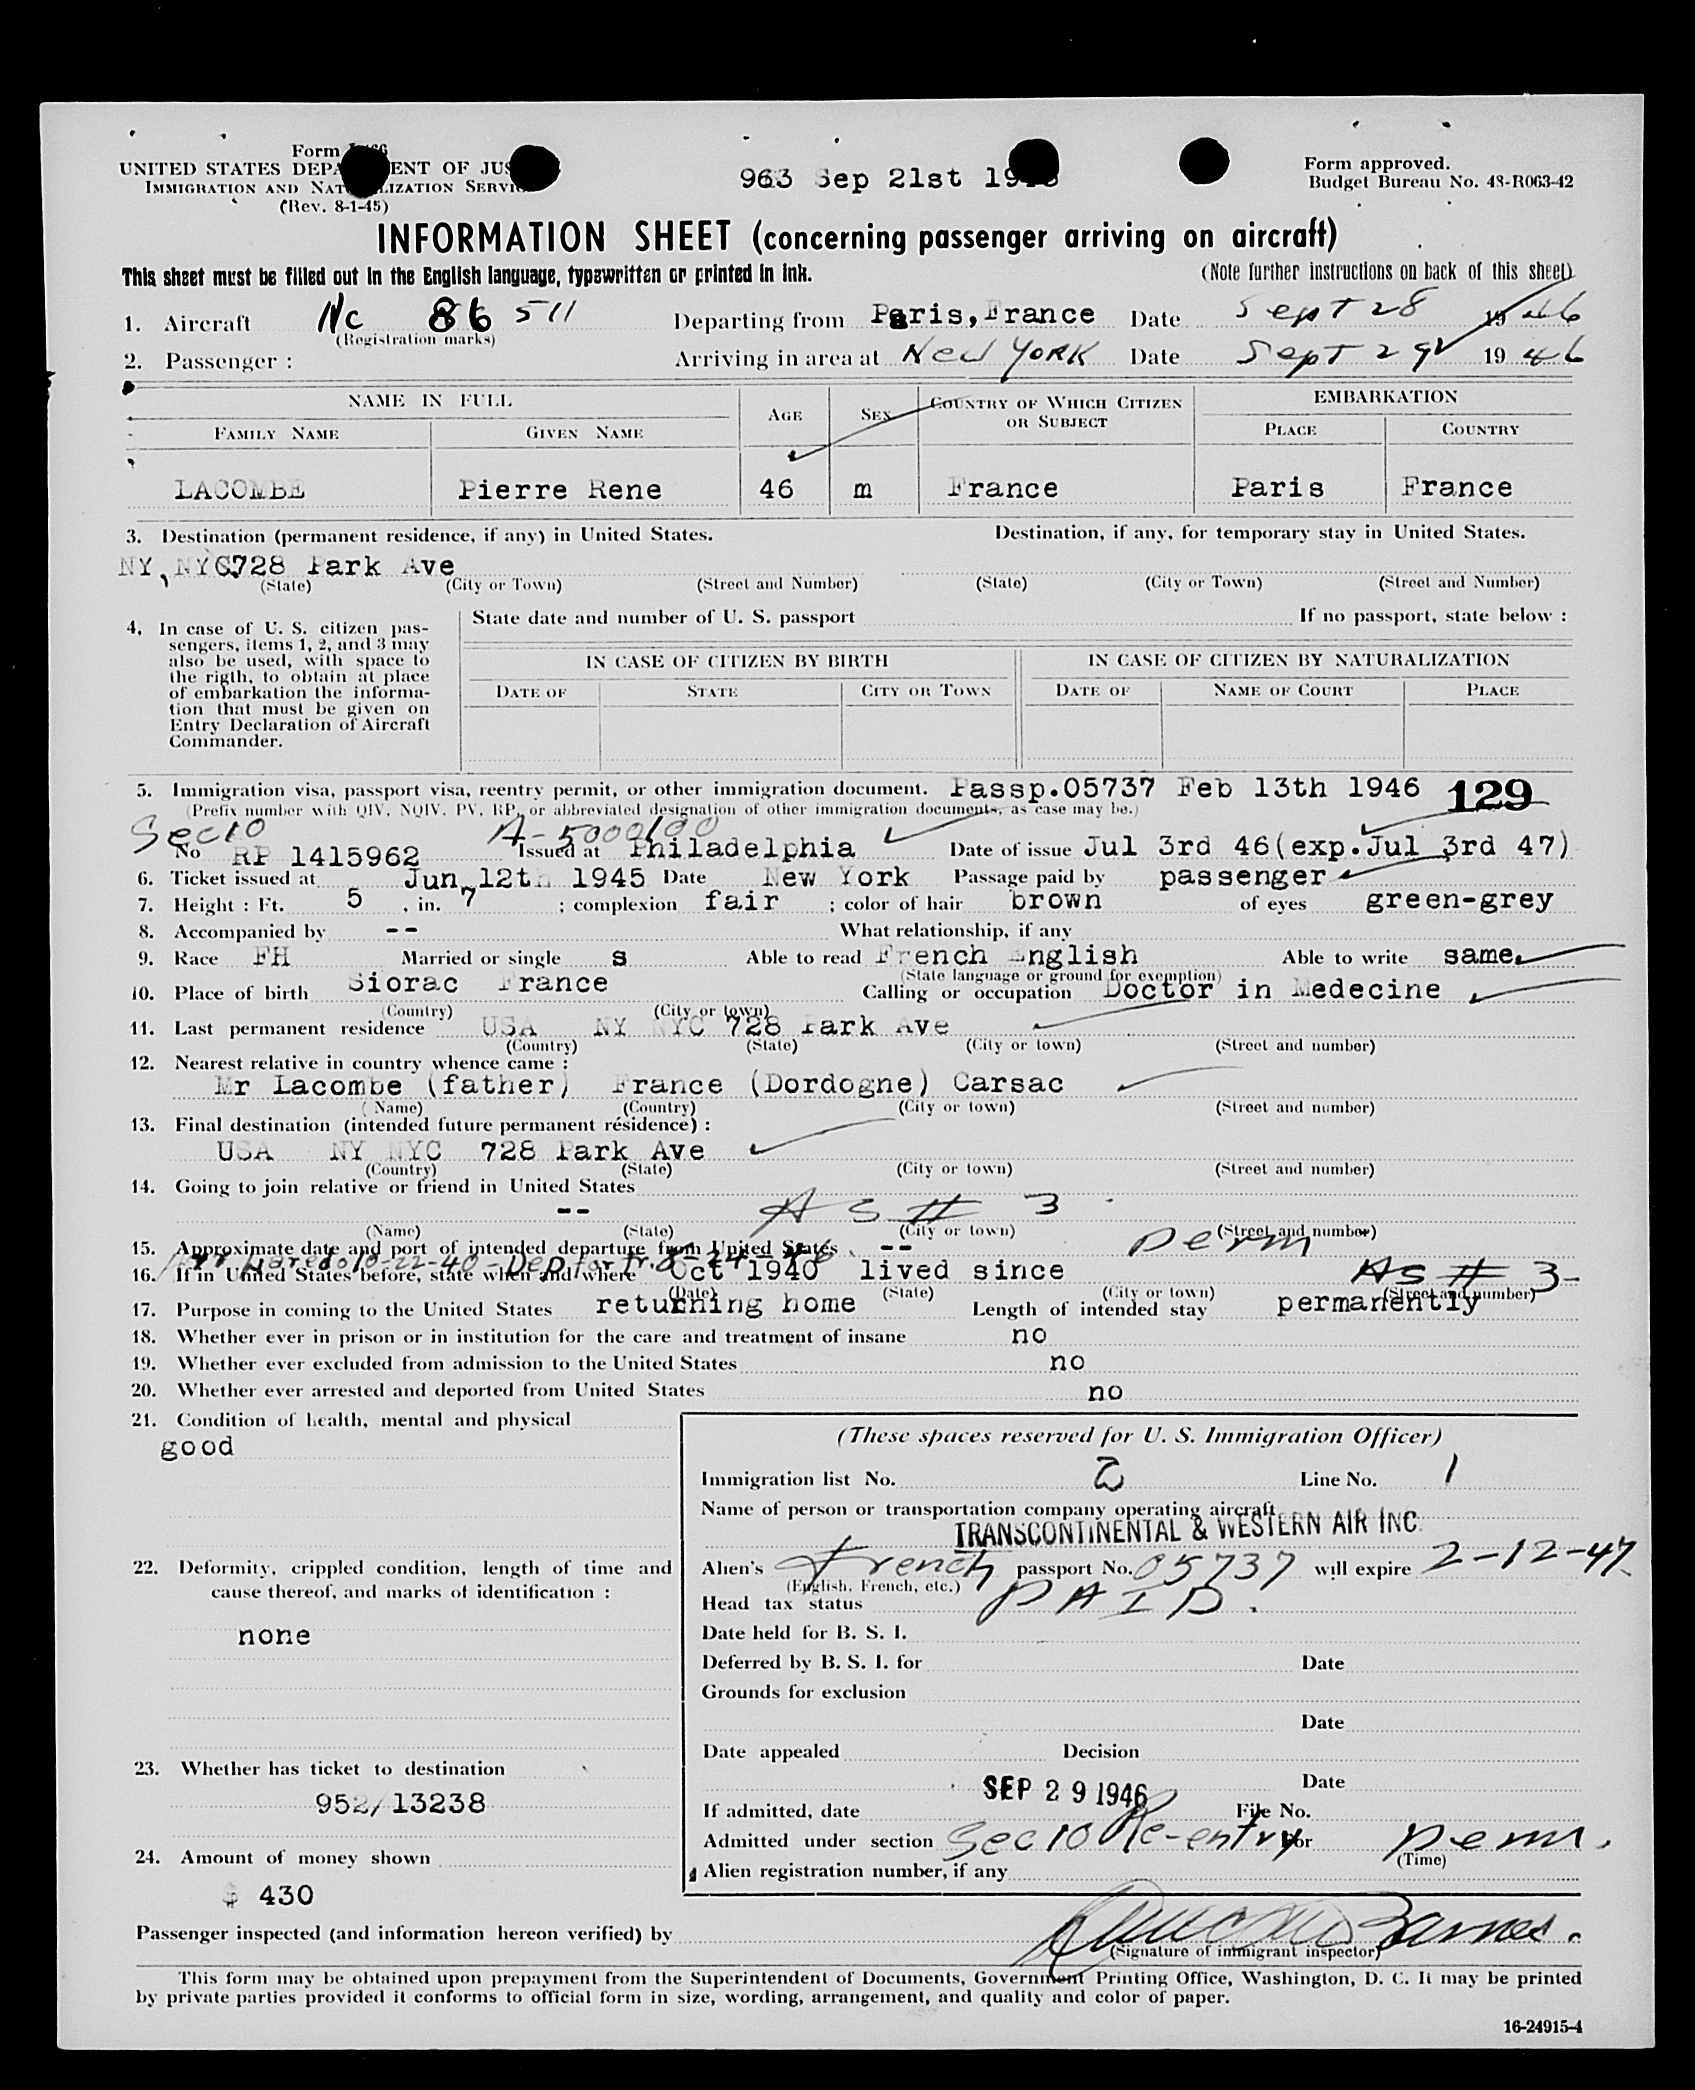 Form
UNITED STATES DEPA ENT OF JUS
IMMIGRATION AND NAT LIZATION SERVI
(Rev. 8-1-45)
963 Sep 21st 19
Form approved.
Budget Bureau No. 43-R063-42
INFORMATION SHEET (concerning passenger arriving on aircraft)
This sheet must be filled out in the English language, typewritten or printed in ink.
(Note further instructions on back of this sheet)
1. Aircraft Nc 86 511 Departing from Paris, France Date Sept 28 1946
(Registration marks)
2. Passenger : Arriving in area at New YORK Date Sept 29 1946
NAME IN FULL
AGE SEX COUNTRY OF WHICH CITIZEN OR SUBJECT EMBARKATION
FAMILY NAME GIVEN NAME PLACE COUNTRY
LACOMBE Pierre Rene 46 m France Paris France
3. Destination (permanent residence, if any) in United States. Destination, if any, for temporary stay in United States.
NY, NYC728 Park Ave
(State) (City or Town) (Street and Number) (State) (City or Town) (Street and Number)
4. In case of U. S. citizen pas-
sengers, items 1, 2, and 3 may
also be used, with space to
the rigth, to obtain at place
of embarkation the informa-
tion that must be given on
Entry Declaration of Aircraft
Commander.
State date and number of U. S. passport If no passport, state below :
IN CASE OF CITIZEN BY BIRTH IN CASE OF CITIZEN BY NATURALIZATION
DATE OF STATE CITY OR TOWN DATE OF NAME OF COURT PLACE
5. Immigration visa, passport visa, reentry permit, or other immigration document. Passp.05737 Feb 13th 1946 129
(Prefix number with QIV, NQIV, PV, RP, or abbreviated designation of other immigration documents, as case may be.)
Sec 10 A-5000100
No RP 1415962 Issued at Philadelphia Date of issue Jul 3rd 46(exp.Jul 3rd 47)
6. Ticket issued at Jun 12th 1945 Date New York Passage paid by passenger
7. Height : Ft. 5 , in. 7 ; complexion fair ; color of hair brown of eyes green-grey
8. Accompanied by -- What relationship, if any
9. Race FH Married or single s Able to read French English Able to write same
(State language or ground for exemption)
10. Place of birth Siorac France Calling or occupation Doctor in Medecine
(Country) (City or town)
11. Last permanent residence USA NY NYC 728 Park Ave
(Country) (State) (City or town) (Street and number)
12. Nearest relative in country whence came :
Mr Lacombe (father) France (Dordogne) Carsac
(Name) (Country) (City or town) (Street and number)
13. Final destination (intended future permanent résidence) :
USA NY NYC 728 Park Ave
(Country) (State) (City or town) (Street and number)
14. Going to join relative or friend in United States
-- AS # 3
(Name) (State) (City or town) (Street and number)
15. Approximate date and port of intended departure from United States -- perm
Arr Laredo 10-22-40 - Dep for Fr. 8-24-46
16. If in United States before, state when and where Oct 1940 lived since AS # 3-
(Date) (State) (City or town) (Street and number)
17. Purpose in coming to the United States returning home Length of intended stay permanently
18. Whether ever in prison or in institution for the care and treatment of insane no
19. Whether ever excluded from admission to the United States no
20. Whether ever arrested and deported from United States no
21. Condition of health, mental and physical
good
22. Deformity, crippled condition, length of time and
cause thereof, and marks of identification :
none
23. Whether has ticket to destination
952/13238
24. Amount of money shown
$ 430
(These spaces reserved for U. S. Immigration Officer)
Immigration list No. 2 Line No. 1
Name of person or transportation company operating aircraft
TRANSCONTINENTAL & WESTERN AIR INC
Alien's French passport No. 05737 will expire 2-12-47
(English, French, etc.)
Head tax status PAID.
Date held for B. S. I.
Deferred by B. S. I. for Date
Grounds for exclusion
Date
Date appealed Decision
Date
If admitted, date SEP 29 1946 File No.
Admitted under section Sec 10 Re-entry For perm.
(Time)
Alien registration number, if any
Passenger inspected (and information hereon verified) by Barnes.
(Signature of immigrant inspector)
This form may be obtained upon prepayment from the Superintendent of Documents, Government Printing Office, Washington, D. C. It may be printed
by private parties provided it conforms to official form in size, wording, arrangement, and quality and color of paper.
16-24915-4